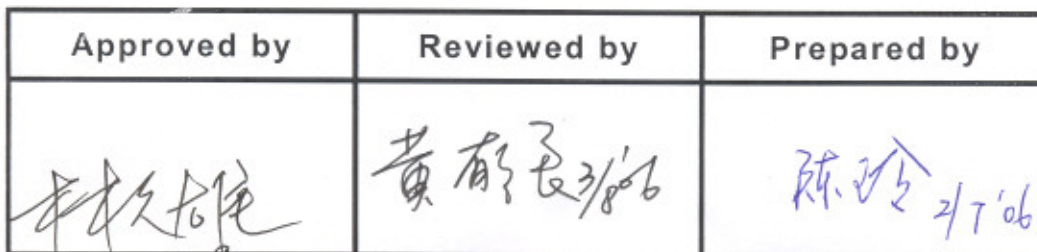 Approved by
Reviewed by
Prepared by
黄 3/8'06
陈玲 2/7'06